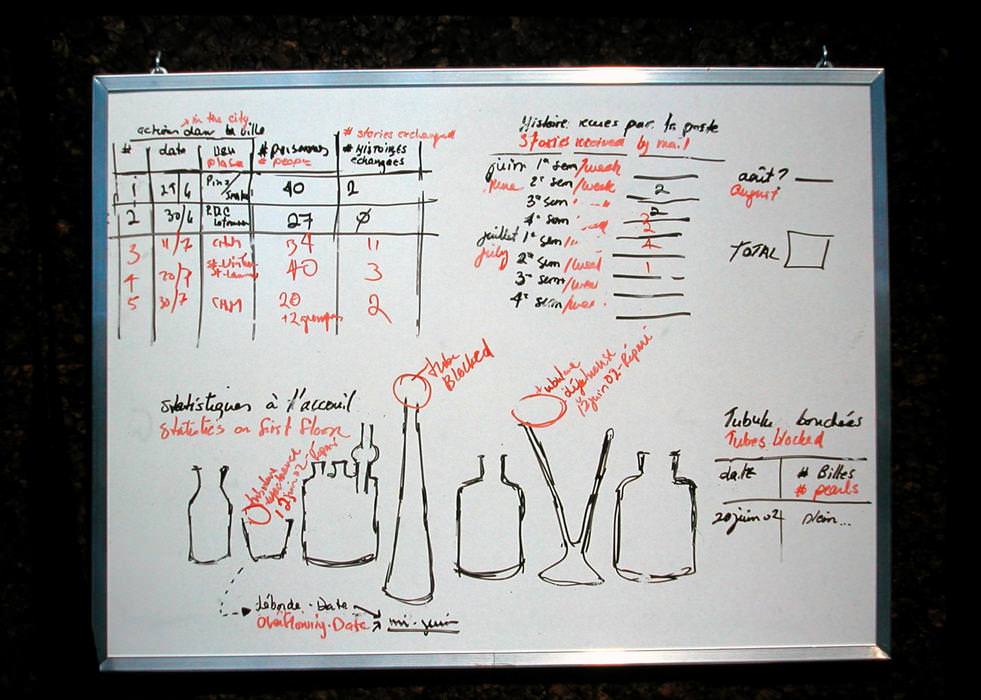 in the city
action dans la ville
# date lieu # personnes # Histoires échangées
place # people # stories exchanged
1 29/6 Pins/ 40 2
2 30/6 27 ø
3 11/7 CHUM 34 11
4 20/7 40 3
5 30/7 CHUM 20 2
+2 groupes
Histoire reçues par la poste
Stories received by mail
juin 1e sem/week
June 2e sem/week 2
3e sem 2
4e sem 2
juillet 1e sem 4
July 2e sem/week 1
3e sem/week
4e sem
août?
August
TOTAL
tube Blocked
tubulure
13 juin 02 - Réparé
Statistiques à l'accueil
Statistics on first floor
tubulure
12 juin 02 - Réparé
Tubulure bouchées
Tubes blocked
date # Billes
# pearls
20 juin 02 plein...
déborde - Date
Overflowing - Date mi-juin